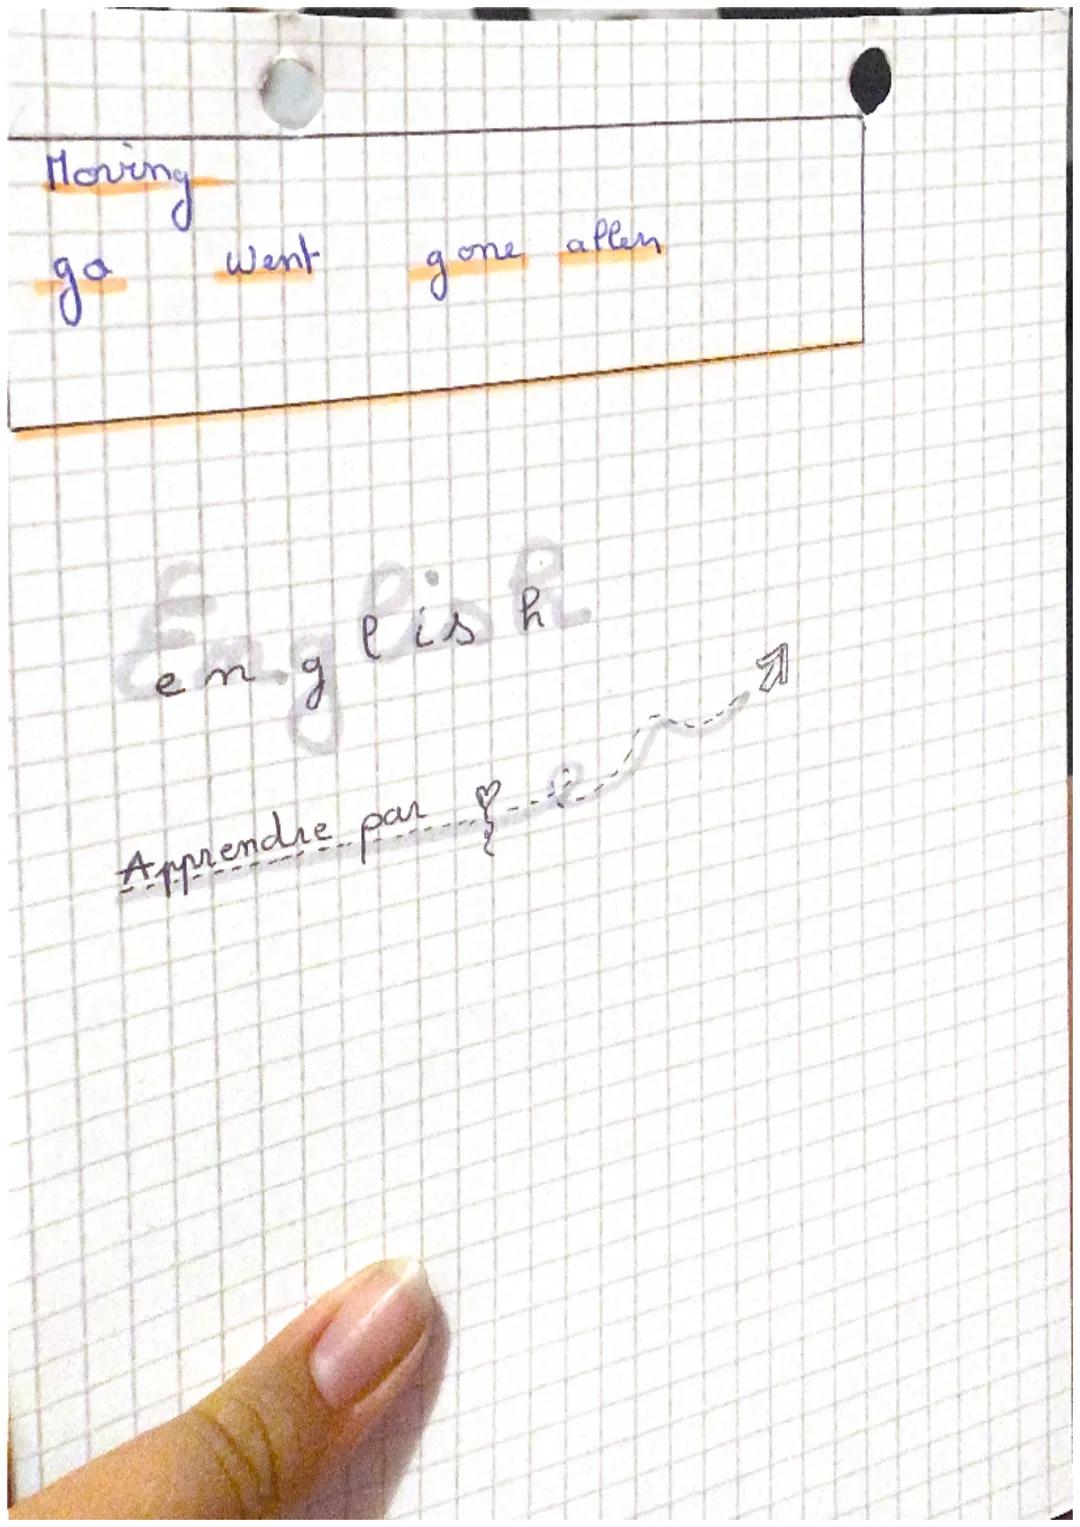 Moving
go went gone aller
English
english
Apprendre par